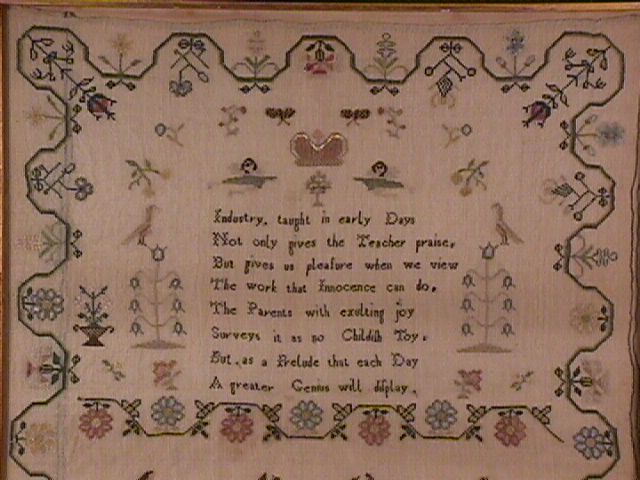 Industry, taught in early Days
Not only gives the Teacher praise,
But gives us pleaſure when we view
The work that Innocence can do,
The Parents with exulting joy
Surveys it as no Childiſh Toy,
But, as a Prelude that each Day
A greater Genius will diſplay.